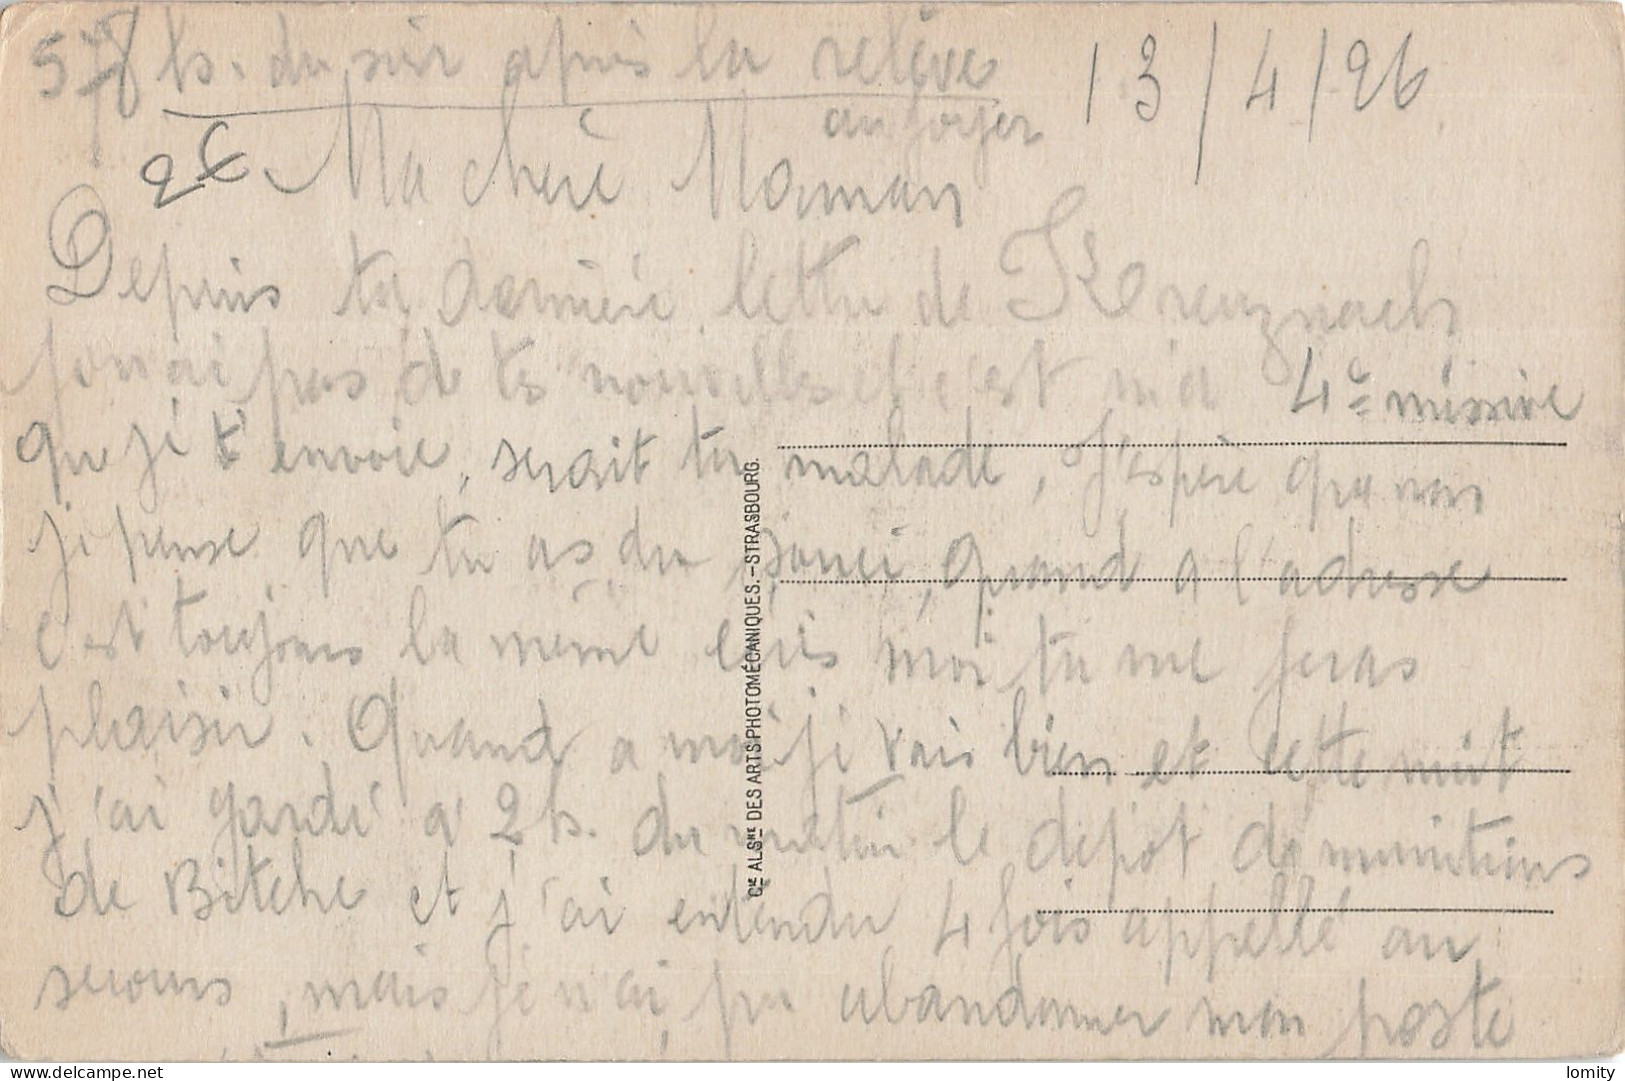 578 h. du soir après la relève
13/4/26
au foyer
Ma chère Maman
Depuis ta dernière lettre de Kreuznach
je n'ai pas de tes nouvelles et c'est ma 4e missive
que je t'envoie, serait tu malade, J'espère que non
je pense que tu as du souci, quand a l'adresse
c'est toujours la même écris moi tu me feras
plaisir. Quand a moi je vais bien et cette nuit
j'ai gardé a 2 h. du matin le dépot de munitions
de Bitche et j'ai entendu 4 fois appellé au
secours, mais je n'ai pu abandonner mon poste
Cie ALSne DES ARTS PHOTOMÉCANIQUES.–STRASBOURG.
https://www.delcampe.net
lomity